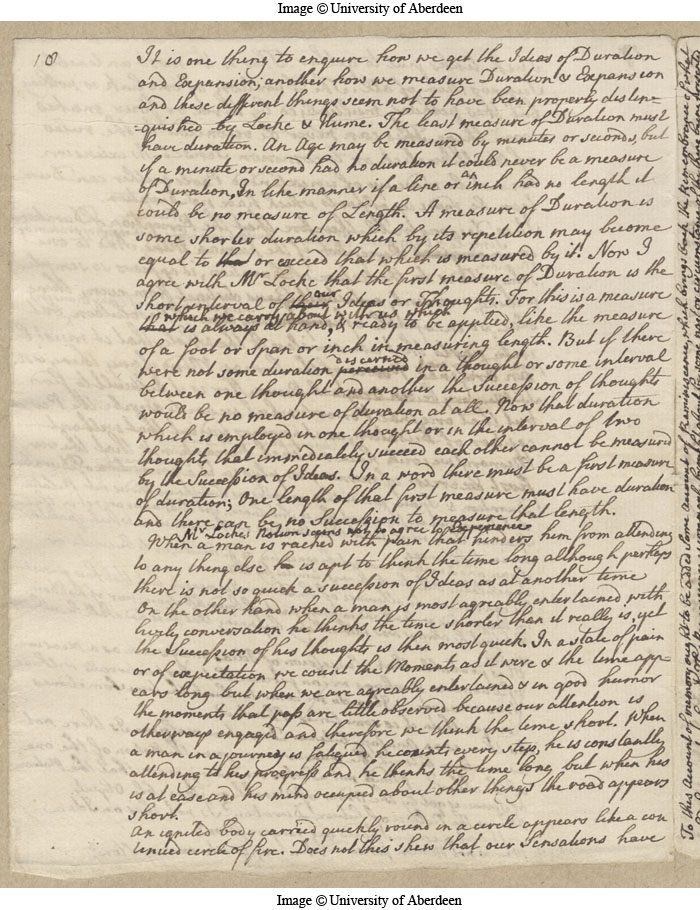 Image © University of Aberdeen
18
It is one thing to enquire how we get the Ideas of Duration
and Expansion; another how we measure Duration & Expansion
and these different things seem not to have been properly distin-
-guished by Locke & Hume. The least measure of Duration must
have duration. An Age may be measured by minutes or seconds, but
if a minute or second had no duration it could never be a measure
of Duration, In like manner if a line or an inch had no length it
could be no measure of Length. A measure of Duration is
some shorter duration which by its repetition may become
equal to the or exceed that which is measured by it. Now I
agree with Mr Locke that the first measure of Duration is the
short interval of their our Ideas or Thoughts. For this is a measure
which we carry about with us which
that is always at hand, & ready to be applied, like the measure
of a foot or Span or inch in measuring length. But if there
were not some duration perceived discerned in a thought or some interval
between one thought and another the Succession of thoughts
would be no measure of duration at all. Now that duration
which is employed in one thought or in the interval of two
thoughts that immediately succeed each other cannot be measured
by the Succession of Ideas. In a word there must be a first measure
of duration; One length of that first measure must have duration
and there can be no Succession to measure that length.
Mr Lockes Notion seems not to agree to experience
When a man is racked with pain that hinders him from attending
to any thing else he is apt to think the time long although perhaps
there is not so quick a succession of Ideas as at another time
On the other hand when a man is most agreably entertained with
lively conversation he thinks the time shorter than it really is, yet
the Succession of his thoughts is then most quick. In a state of pain
or of expectation we count the Moments as it were & the time app-
ears long but when we are agreably entertained & in good humor
the moments that pass are little observed because our attention is
otherways engaged and therefore we think the time short. When
a man in a journey is fatigued he counts every step, he is constantly
attending to his progress and he thinks the time long but when he is
is at ease and his mind occupied about other things the road appears
short.
An ignited body carried quickly round in a circle appears like a con
tinued circle of fire. Does not this shew that our Sensations have
To this account of memory ought to be added some account of Reminiscence, which brings back the Remembrance of forgot
Image © University of Aberdeen